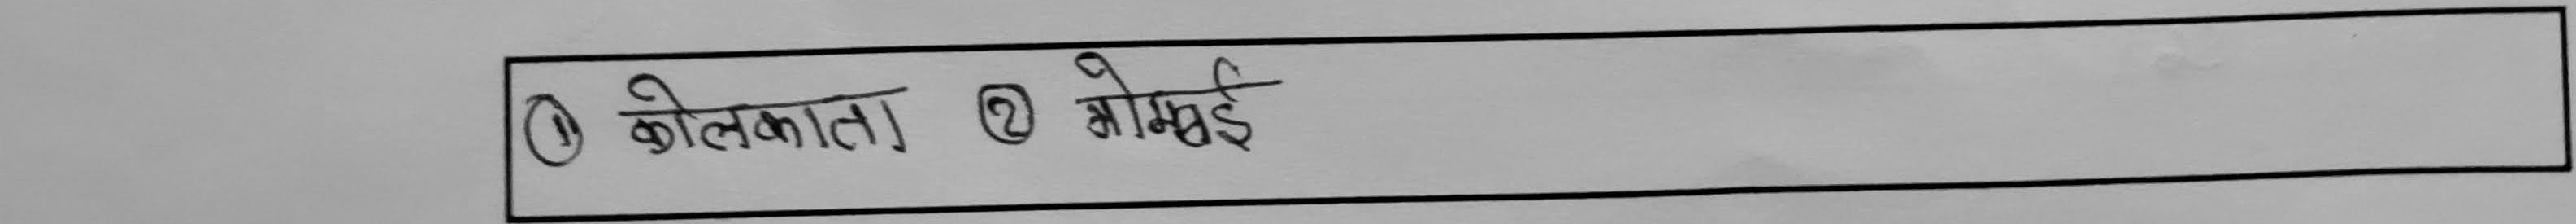 ① कोलकाता ② मोम्बई